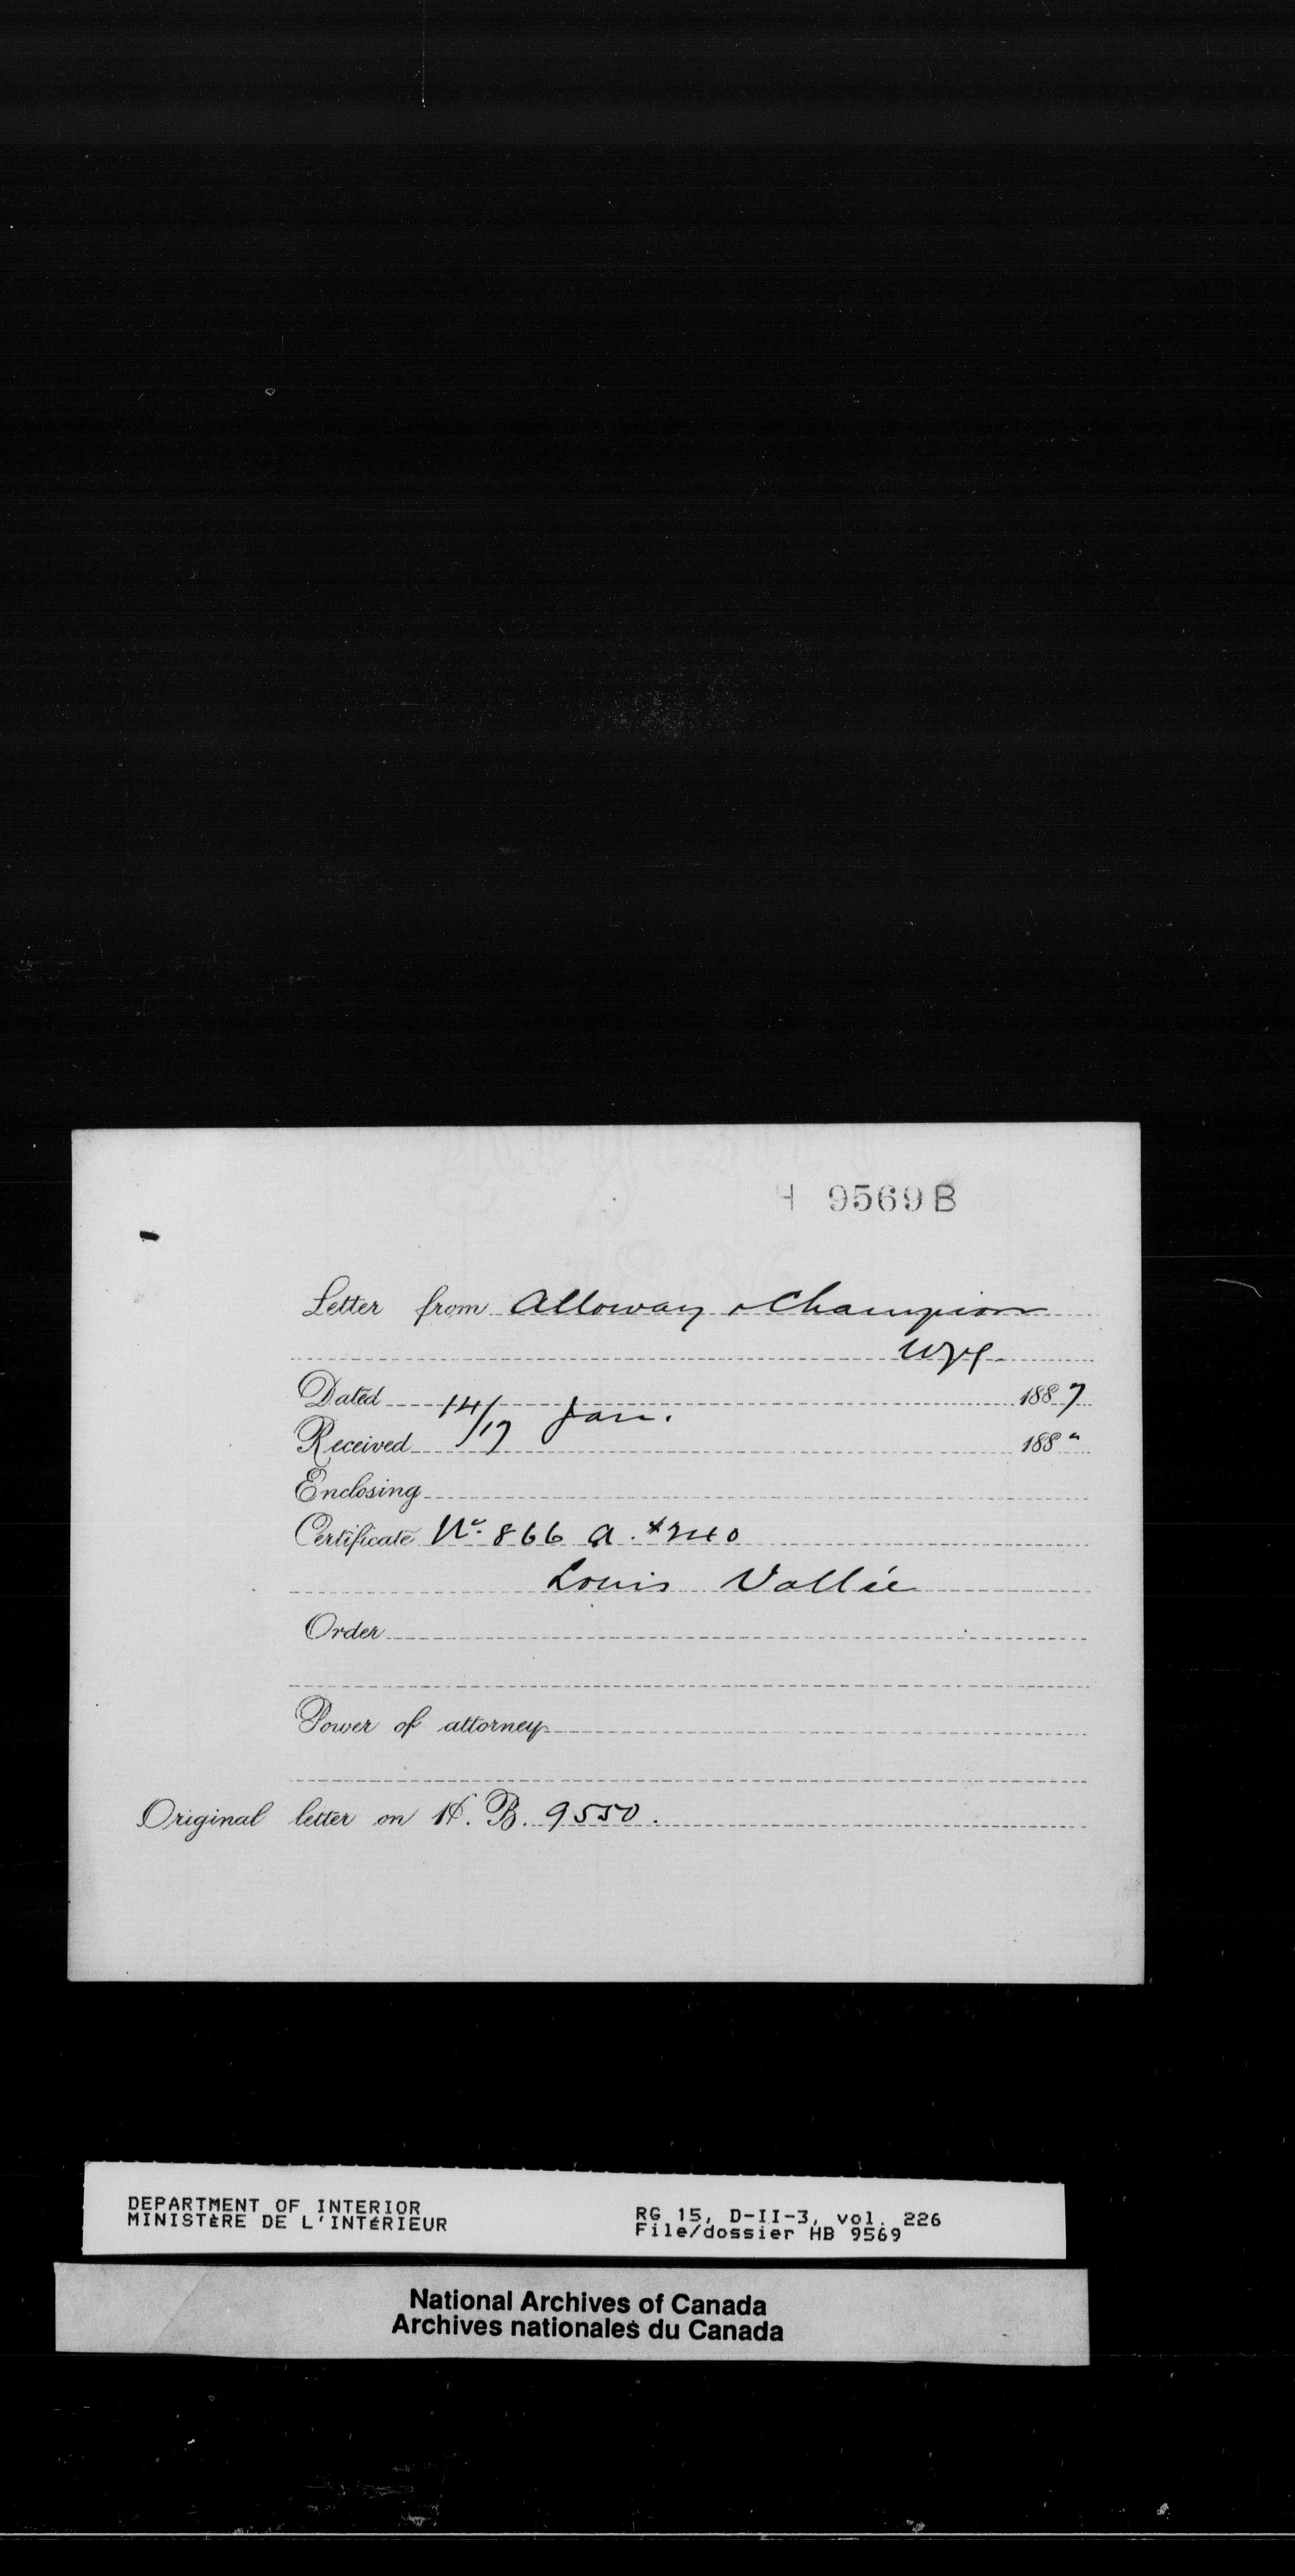 H 9569 B
Letter from Alloway & Champion
Wpg.
Dated 14/17 Jan. 1887
Received 188 "
Enclosing
Certificate No. 866 A. $240
Louis Vallée
Order
Power of attorney
Original letter on H. B. 9550.
DEPARTMENT OF INTERIOR
MINISTÈRE DE L'INTÉRIEUR
RG 15, D-II-3, vol. 226
File/dossier HB 9569
National Archives of Canada
Archives nationales du Canada